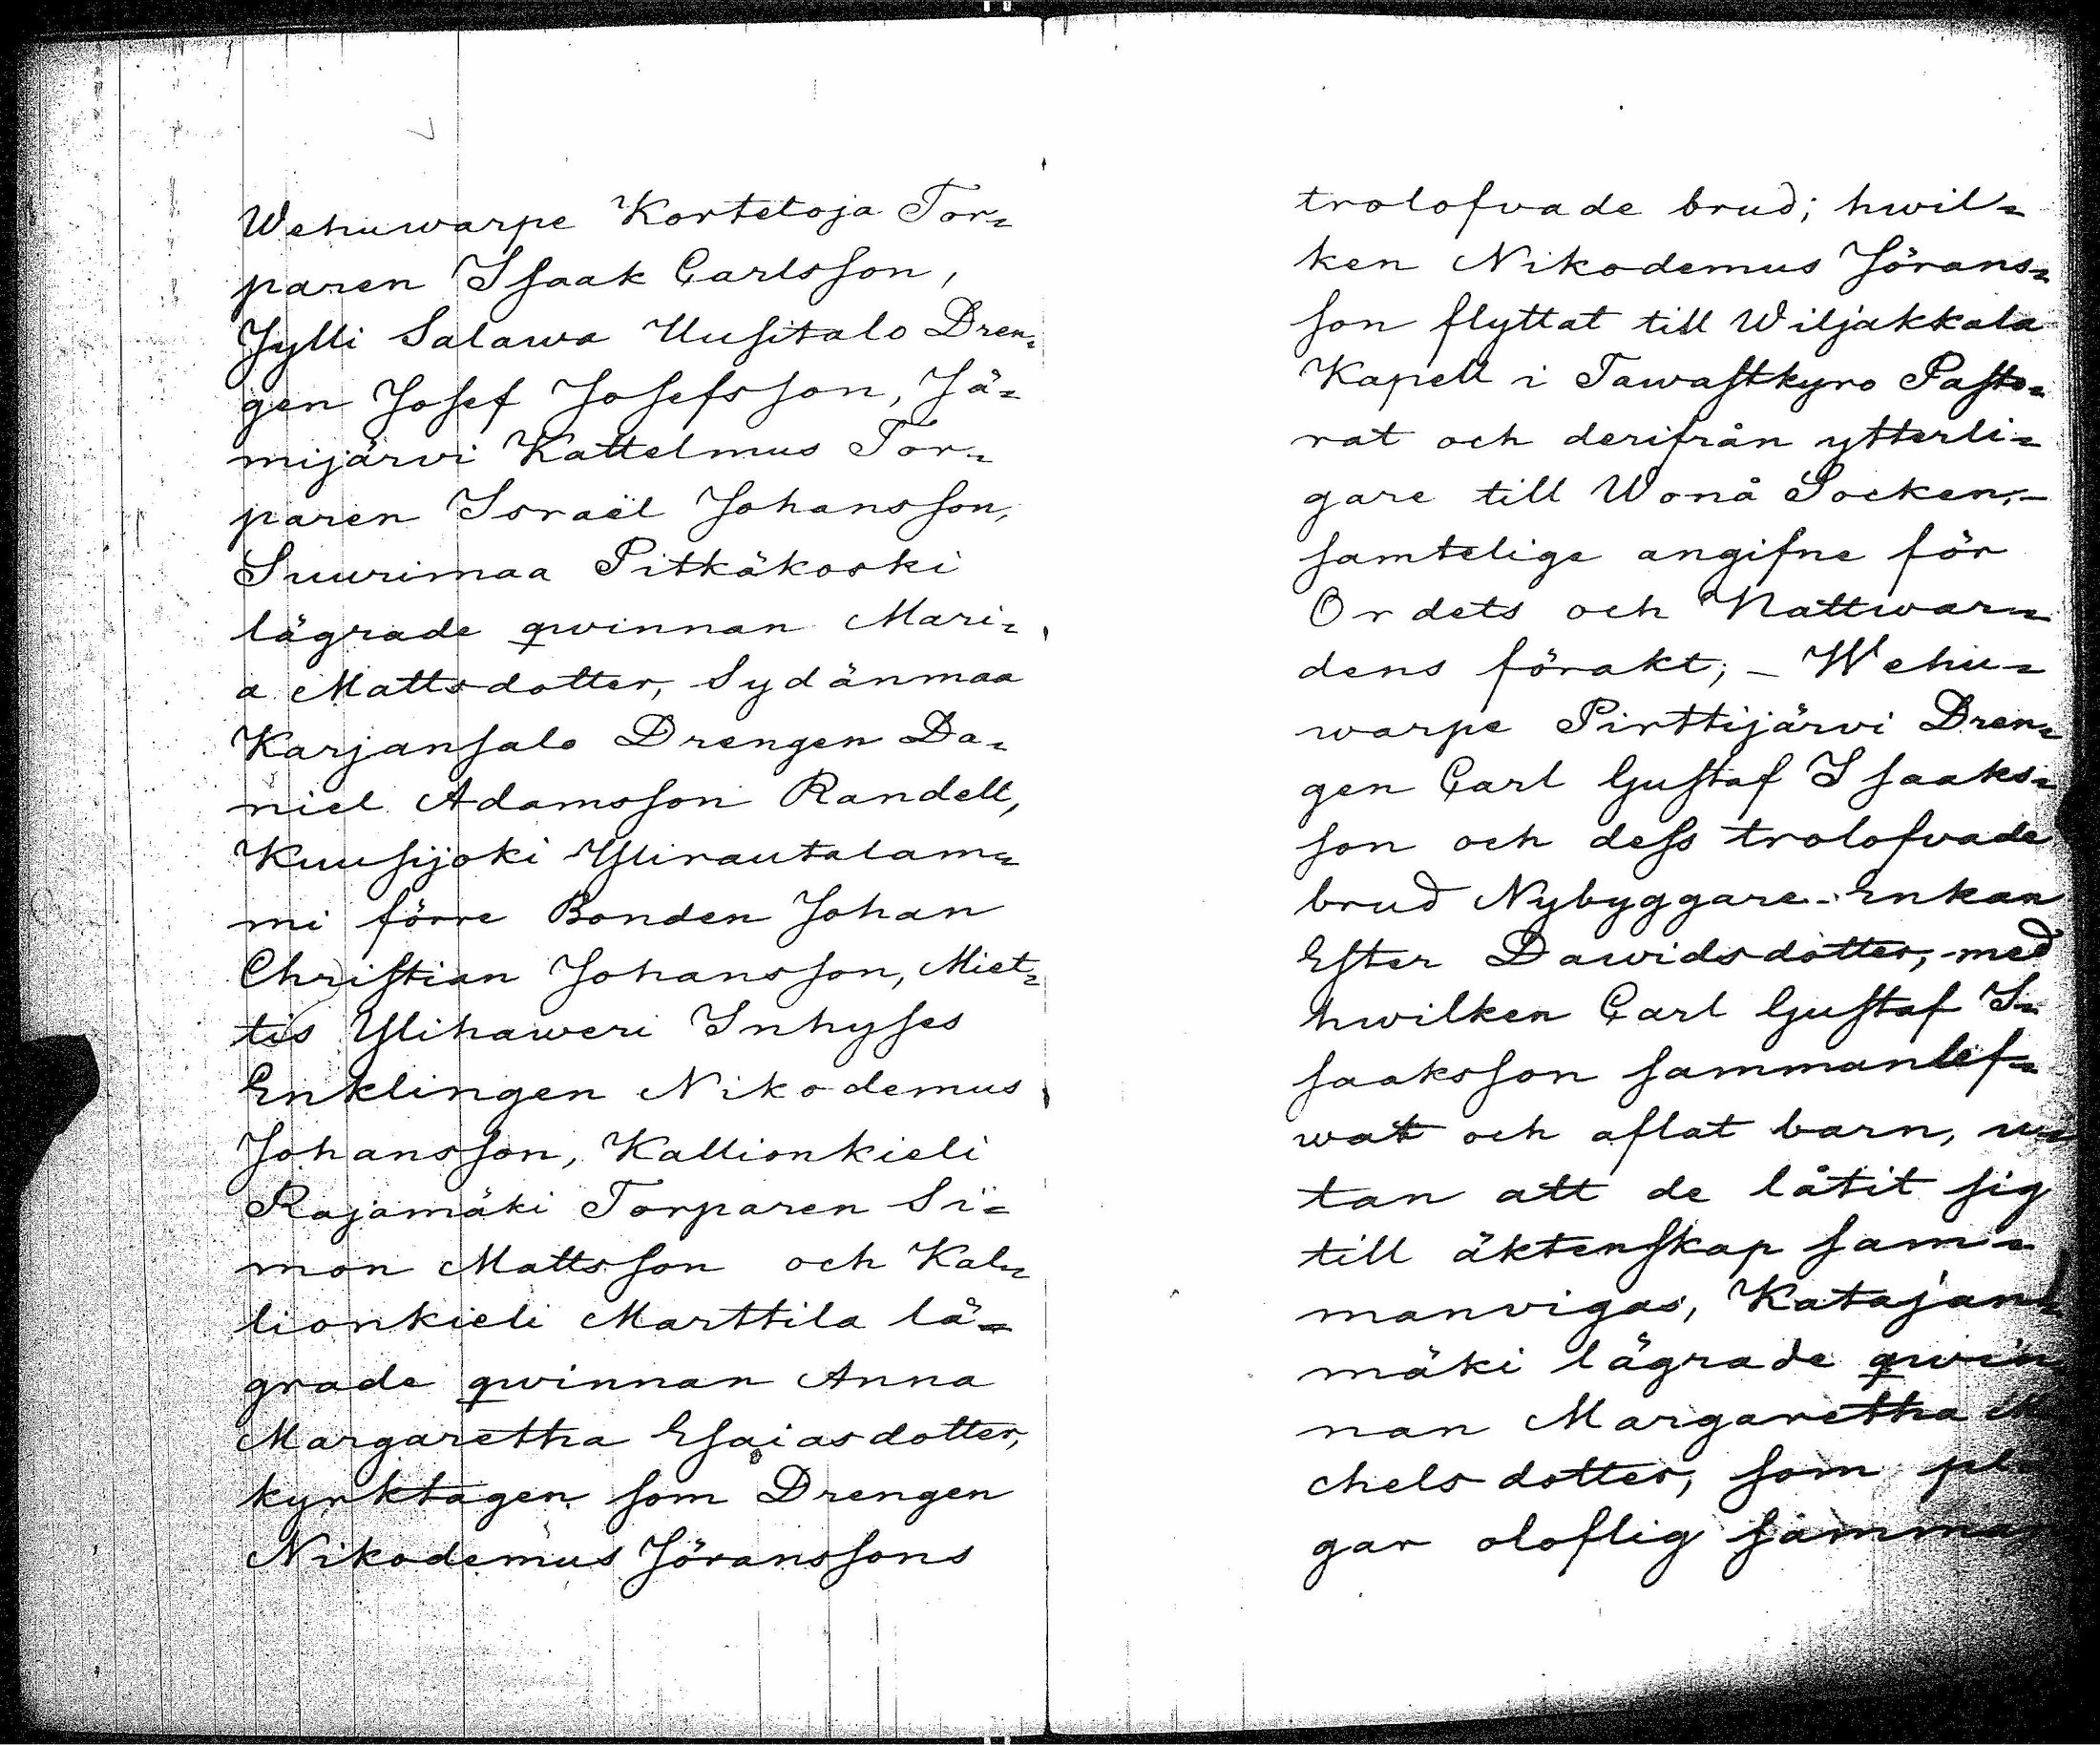 Wehuwarpe Kortetoja Tor=
paren Isaak Carlsson,
Jylli Salawa Uusitalo Dren=
gen Josef Josefsson, Jä=
mijärvi Kattelmus Tor=
paren Israël Johansson,
Suurimaa Pitkäkoski
lägrade qwinnan Mari=
a Mattsdotter, Sydänmaa
Karjansalo Drengen Da=
niel Adamsson Randell,
Kuusijoki Ylirautalam=
mi förre Bonden Johan
Christian Johansson, Miet=
tis Ylihaweri Inhyses
Enklingen Nikodemus
Johansson, Kallionkieli
Rajamäki Torparen Si=
mon Mattsson och Kal=
lionkieli Marttila lä=
grade qwinnan Anna
Margaretha Esaiasdotter,
kyrktagen som Drengen
Nikodemus Jöranssons
trolofvade brud; hwil=
ken Nikodemus Jörans=
son flyttat till Wiljakkala
Kapell i Tawastkyro Pasto=
rat och derifrån ytterli=
gare till Wonå Socken,-
samtelige angifne för
Ordets och Nattwar=
dens förakt; - Wehu=
warpe Pirttijärvi Dren=
gen Carl Gustaf Isaaks=
son och dess trolofvade
brud Nybyggare-Enkan
Ester Dawidsdotter, med
hwilken Carl Gustaf I=
saaksson sammanlef=
wat och aflat barn, u=
tan att de låtit sig
till äktenskap sam=
manvigas, Katajan=
mäki lägrade qwin
nan Margaretha
chelsdotter, som pl
gar oloflig samma